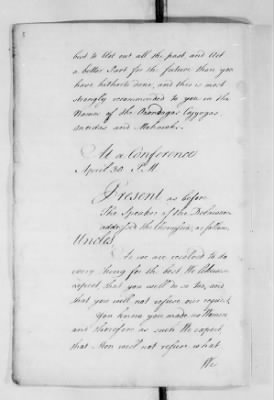 best to blot out all the past, and Act
a better Part for the future than you
have hitherto done, and this is most
strongly recommended to you in the
Name of the Onondagas Cayygas
and Mohawks.
At a Conference
April 30 P.M
Present as before
The Speaker of the Delawares
addressed the Cherokees, as follows,
Uncles
As we are resolved to do
every thing for the best We
expect that you will do so too, and
that you will not refuse our request,
You know you made us Women
and therefore as such We expect,
that Men will not refuse what
We